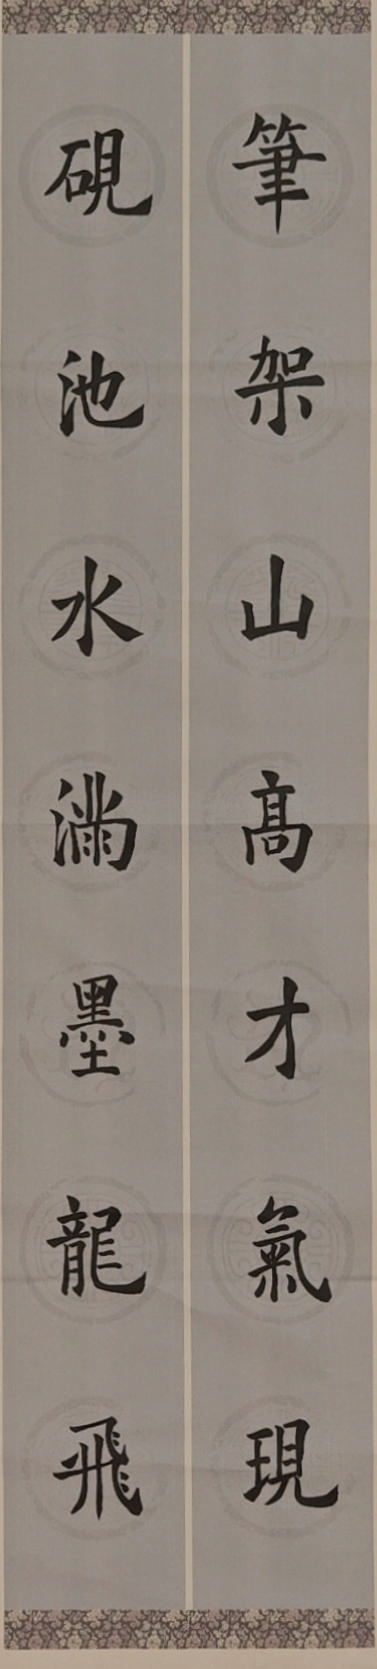 筆架山高才氣現
硯池水滿墨龍飛